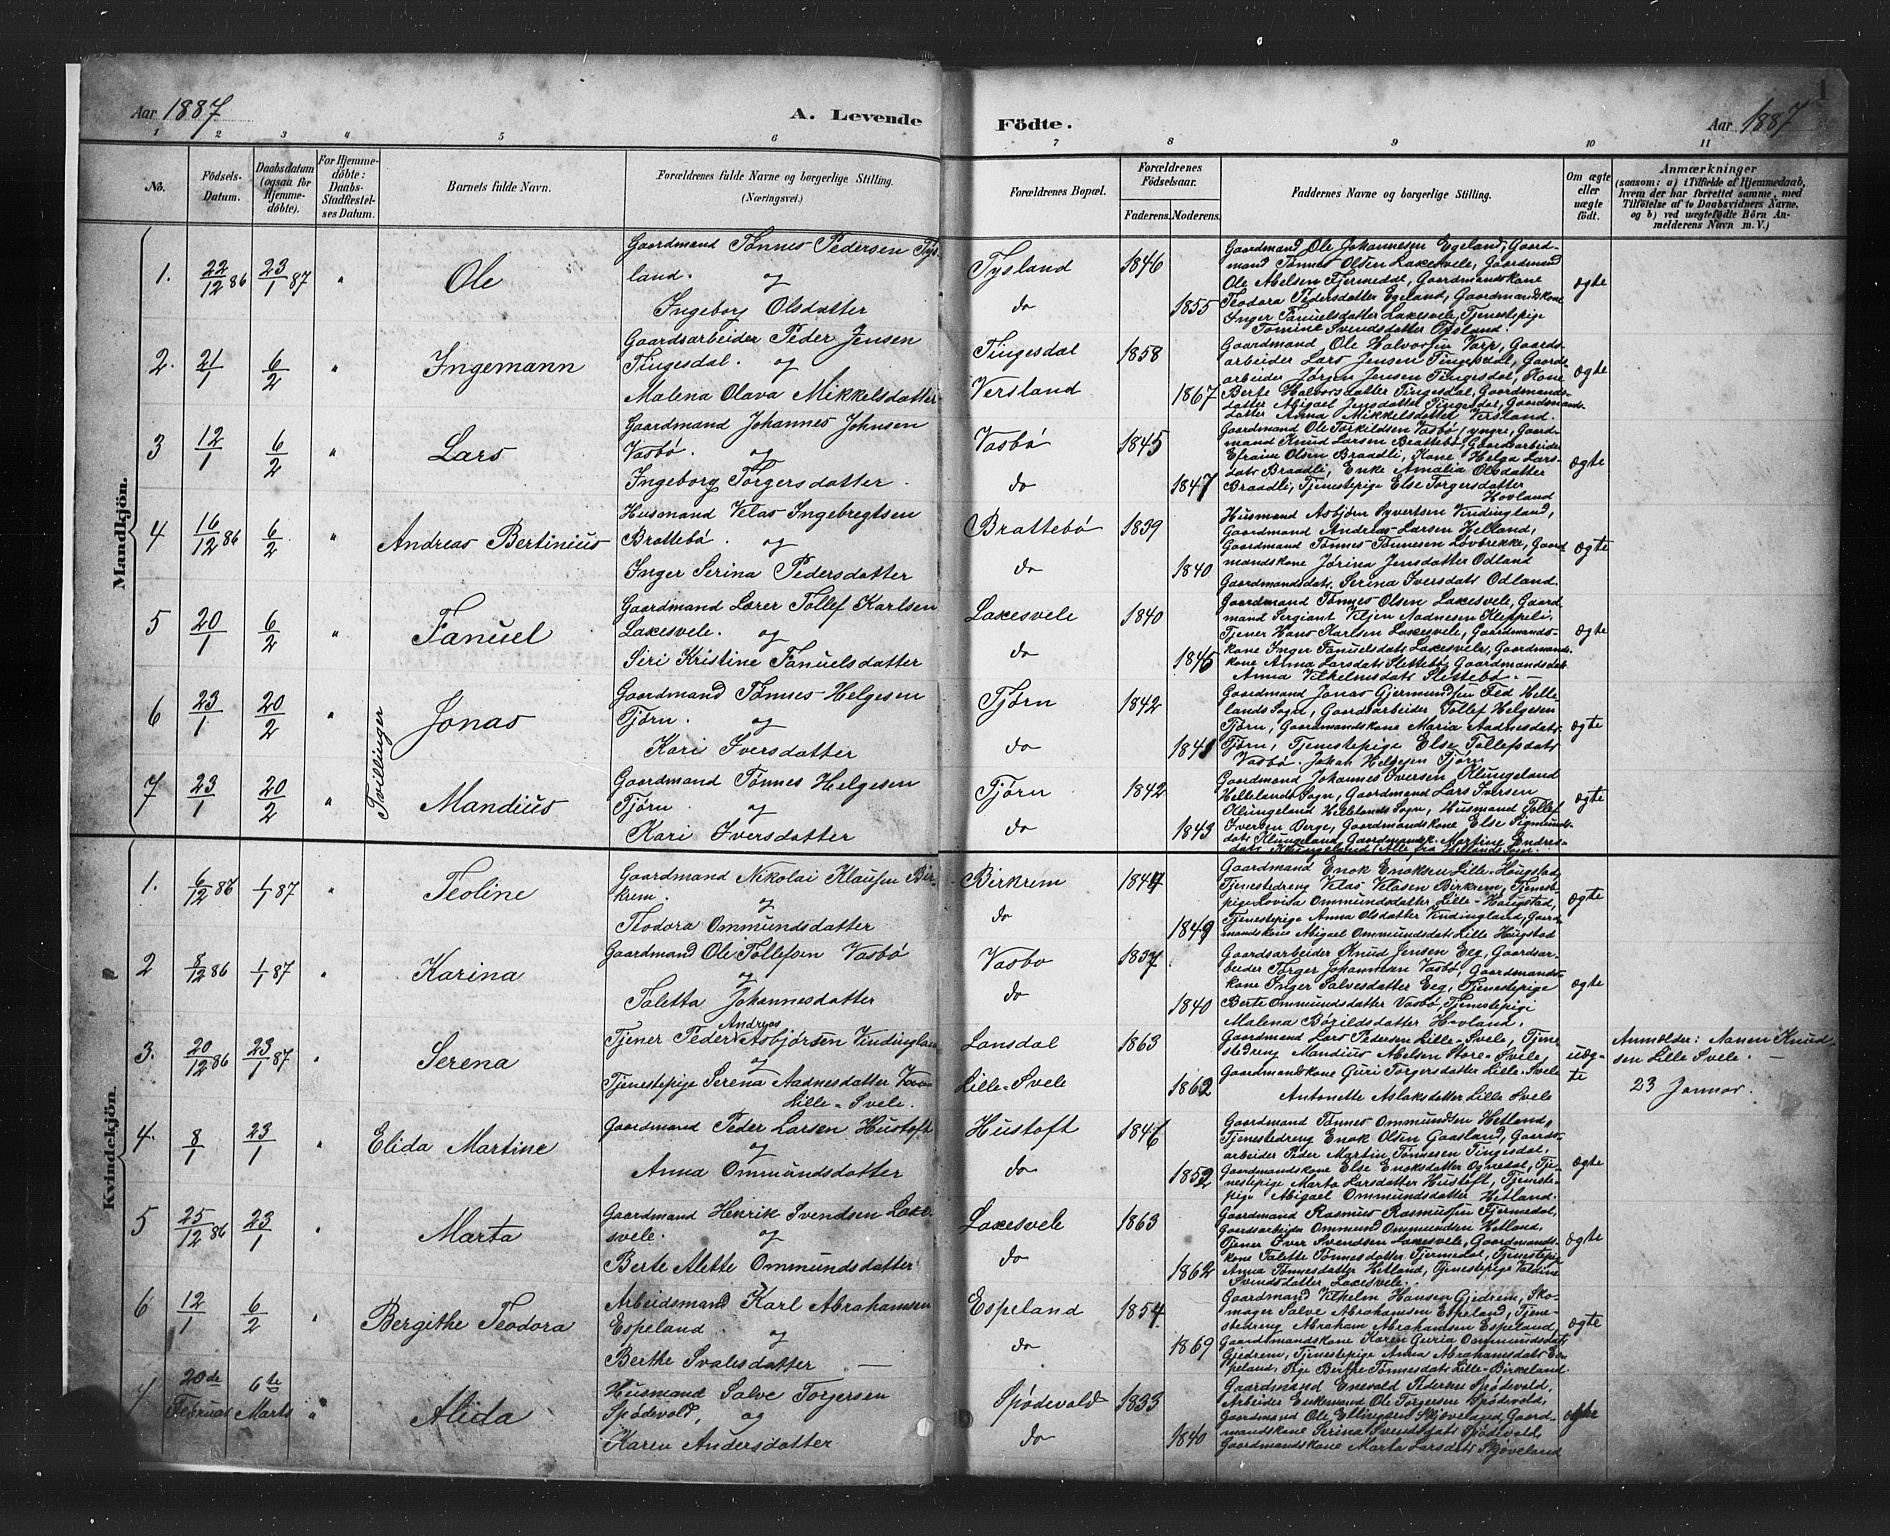 Aar 1887 A. Levende Födte. Aar 1887 1
1 2 3 4 5 6 7 8 9 10 11
No. Födsels-Datum. Daabsdatum (ogsaa for Hjemme-döbte). For Hjemme-döbte: Daabs-Stadfæstel-ses Datum. Barnets fulde Navn. Forældrenes fulde Navne og borgerlige Stilling. (Næringsvei.) Forældrenes Bopæl. Forældrenes Födselsaar. Faderens. Moderens. Faddernes Navne og borgerlige Stilling. Om ægte eller uægte födt. Anmærkninger (saasom: a) i Tilfælde af Hjemmedaab, hvem der har forrettet samme, med Tilföielse af to Daabsvidners Navne, og b) ved uægtefödte Börn An-melderens Navn m. V.)
Mandkjön.
1. 22/12 86 23/1 87 " Ole
Gaardmand Tønnes Pedersen Tys-
land. og
Ingeborg Olsdatter
Tysland 1846
do 1855
Gaardmand Ole Johannesen Egeland, Gaard-
mand Tønnes Olsen Laxesvele, Gaardmand
Ole Abelsen Tjermedal, Gaardmandskone
Teodora Pedersdatter Egeland, Gaardmandskone
Inger Fanuelsdatter Laxesvele, Tjenestepige
Tomine Svendsdatter Tysland.
ægte
2. 21/1 6/2 " Ingemann
Gaardsarbeider Peder Jensen
Tingesdal. og
Malena Olava Mikkelsdatter
Tingesdal 1858
Versland 1867
Gaardmand Ole Halvorsen Varp, Gaards-
arbeider Lars Jensen Tingesdal, Gaards-
arbeider Jørgen Jensen Tingesdal, Kone
Berte Halvorsdatter Tingesdal, Gaardmands-
datter Abigael Jensdatter Tingesdal, Gaardmands-
datter Anna Mikkelsdatter Versland.
ægte
3 12/1 6/2 " Lars
Gaardmand Johannes Johnsen
Vasbø. og
Ingeborg Torgersdatter.
Vasbø 1845
do 1847
Gaardmand Ole Torkildsen Vasbø, yngre, Gaard-
mand Knud Larsen Brattebø, Gaardsarbeider
Efraim Olsen Braadli, Kone Helga Lars-
dats Braadli, Enke Amalia Olsdatter
Braadli, Tjenestepige Else Torgersdatter
Hovland
ægte
4 16/12 86 6/2 " Andreas Bertinius
Husmand Velas Ingebregtsen
Brattebø. og
Inger Serina Pedersdatter
Brattebø 1839
do 1840
Husmand Asbjørn Syvertsen Vindingland,
Gaardmand Andreas Larsen Helland,
Gaardmand Tønnes Tønnesen Løvbrekke, Gaard
mandskone Jørina Jensdatter Odland
Gaardmandsdats. Serina Iversdats Odland.
ægte
5 20/1 6/2 " Fanuel
Gaardmand Lærer Tollef Karlsen
Laxesvele. og
Siri Kristine Fanuelsdatter
Laxesvele 1840
do 1845
Gaardmand Tønnes Olsen Laxesvele, Gaard
mand Sergiant Viljen Aadnesen Kleppeli,
Tjener Hans Karlsen Laxesvele, Gaardmands-
kone Inger Fanuelsdats Laxesvele, Gaardmands-
kone Anna Larsdats Slettebø, Gaardmandsdat.
Anna Vilhelmsdats Slettebø.
ægte
Tvillinger
6 23/1 20/2 " Jonas
Gaardmand Tønnes Helgesen
Tjørn. og
Kari Iversdatter
Tjørn 1842
do
Gaardmand Jonas Gjermundsen Fed Helle-
lands Sogn, Gaardsarbeider Tollef Helgesen
Tjørn, Gaardmandskone Maria Aadnesdats
Tjørn, Tjenestepige Else Tollefsdats
Vasbø. Johan Helgesen Tjørn
ægte
7 23/1 20/2 " Mandius
Gaardmand Tønnes Helgesen
Tjørn. og
Kari Iversdatter
Tjørn 1842
do 1843
Gaardmand Johannes Iversen Klungeland
Hellelands Sogn, Gaardmand Lars Iversen
Klungeland Hellelands Sogn, Husmand Tollef
Iversen Berge, Gaardmandskone Else Sigmunds-
dats Klungeland, Gaardmandsk. Martine Endres-
dats Klungeland, Alle fra Hellelands Sogn.
ægte
Kvindekjön.
1. 6/12 86 1/1 87 Teoline
Gaardmand Nikolai Klausen Bir-
krem. og
Teodora Ommundsdatter
Birkrem
do 1849
Gaardmand Enok Enoksen Lille-Haugstad,
Tjenestedreng Velas Velasen Birkrem, Tjeneste-
pige Lovisa Ommundsdatter Lille-Haugstad,
Tjenestepige Anna Olsdatter Vindingland, Gaard-
mandskone Abigael Ommundsdats Lille Haugstad
ægte
2 8/12 86 1/1 87 " Karina
Gaardmand Ole Tollefsen Vasbø
og
Taletta Johannesdatter
Vasbø 1837
do 1840
Gaardsarbeider Knud Jensen Eeg, Gaardsar-
beider Torger Johannesen Vasbø, Gaardmands-
kone Inger Salvesdatter Eeg, Tjenestepige
Berte Ommundsdatter Vasbø, Tjenestepige
Malena Bøgildsdatter Hovland.
ægte
3. 20/12 86 23/1 87 " Serena
Tjener Peder Andreas Asbjørsen Vindingland
og
Tjenestepige Serena Aadnesdatter
Lille-Svele.
Lansdal 1863
Lille-Svele 1862
Gaardmand Lars Pedersen Lille-Svele, Tjene
stedreng Mandius Abelsen Store-Svele,
Gaardmandskone Guri Torgersdatter Lille-Svele
Antonette Aslaksdatter Lille Svele
uæg-
te
Anmelder: Aanen Knud-
sen Lille Svele.
23 Januar.
4. 8/1 23/1 " Elida Martine
Gaardmand Peder Larsen Hustoft
og
Anna Ommundsdatter
Hustoft 1846
do 1852
Gaardmand Tønnes Ommundsen Hetland,
Tjenestedreng Enok Olsen Gaasland, Gaards-
arbeider Peder Martin Tønnesen Tingesdal,
Gaardmandskone Else Enoksdatter Ognedal, Tje-
nestepige Marta Larsdatter Hustoft, Tjeneste-
pige Abigael Ommundsdatter Hetland.
ægte
5 25/12 86 23/1 " Marta
Gaardmand Henrik Svendsen Laxe-
svele. og
Berte Alette Ommundsdatter
Laxesvele 1863
do 1862
Gaardmand Rasmus Rasmussen Tjermedal,
Gaardsarbeider Ommund Ommundsen Hetland,
Tjener Iver Svendsen Laxesvele, Gaardmands-
kone Talette Tønnesdatter Tjermedal, Tjenestepige
Anna Tønnesdatter Hetland, Tjenestepige
Svendsdatter Laxesvele.
ægte
6 12/1 6/2 " Bergithe Teodora
Arbeidsmand Karl Abrahamsen
Espeland. og
Berthe Svalesdatter —
Espeland 1854
do 1869
Gaardmand Vilhelm Hansen Gjedrem, Sko-
mager Salve Abrahamsen Espeland, Tjene-
stedreng Abraham Abrahamsen Espeland,
Gaardmandskone Karen Guria Ommundsdats
Gjedrem, Tjenestepige Anna Abrahamsdats Es-
peland, Pige Berthe Tønnesdats Lille-Birkeland.
ægte
7 20de Februar 6te Marts " Alida
Husmand Salve Torgersen
Spødevold, og
Karen Andersdatter
Spødevold 1833
do 1840
Gaardmand Enevold Pedersen Spødevold,
Arbeider Enkemand Ole Torgersen Spødevold,
Gaardmand Ole Ellingsen Skjæveland, Gaard-
mandskone Serina Svendsdats Spødevold,
Gaardmandskone Marta Larsdats Skjæveland
ægte